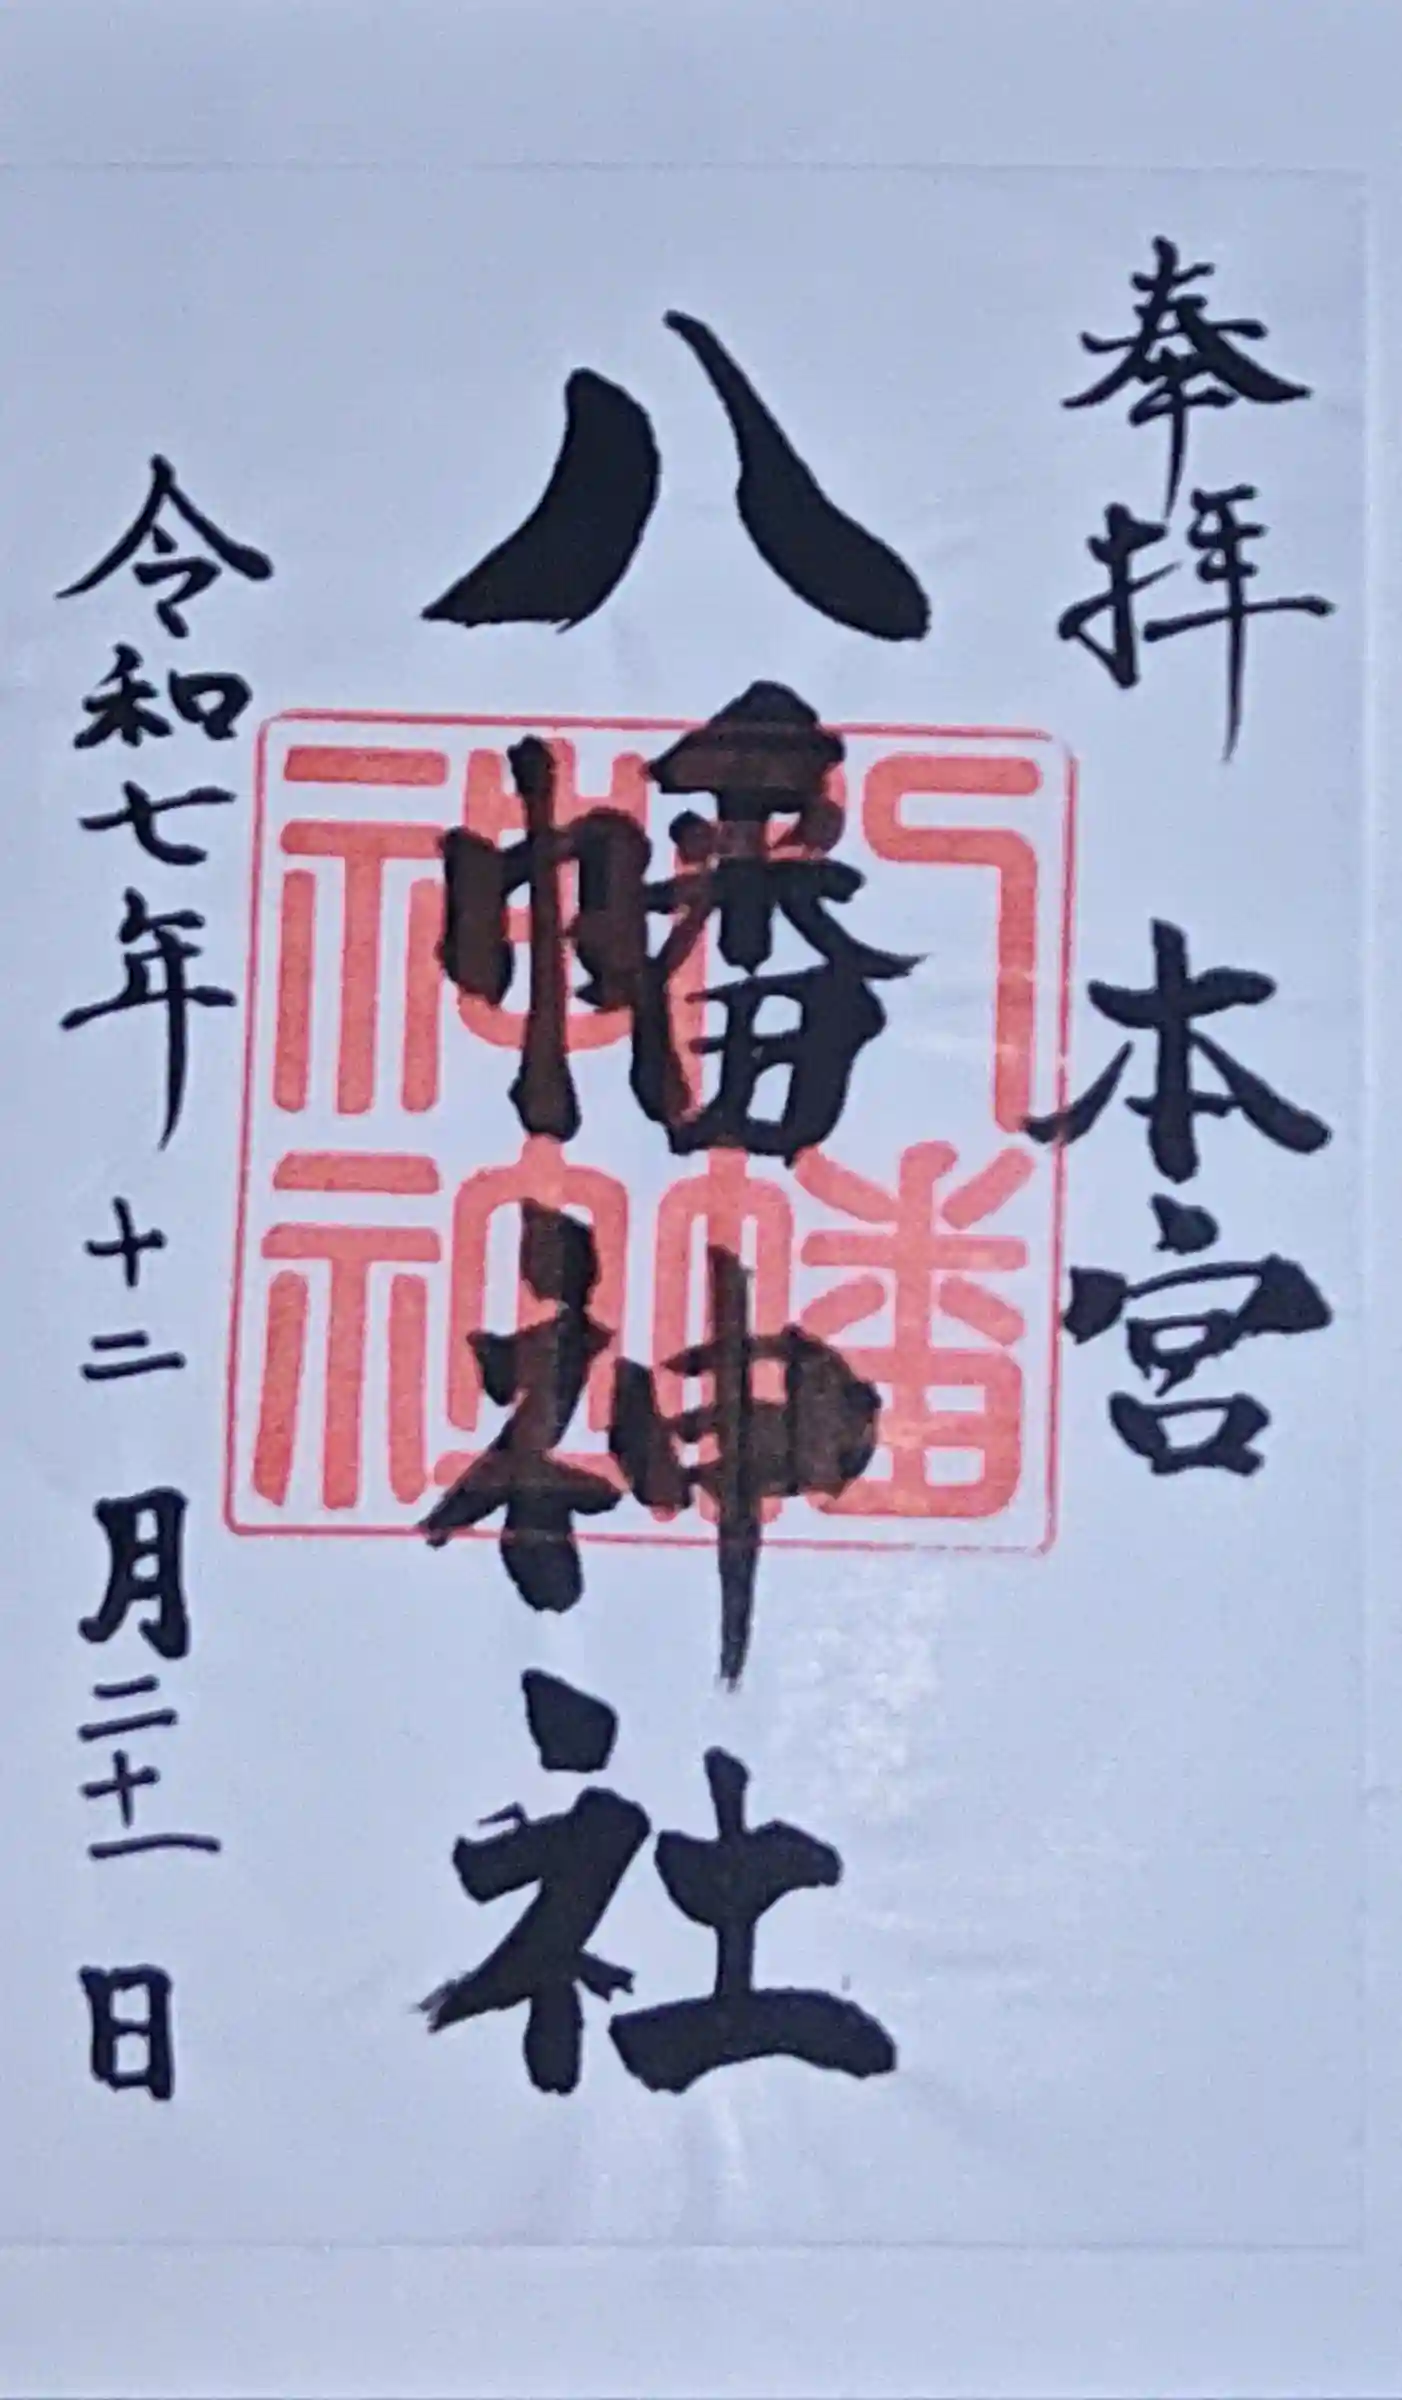 奉拝 本宮
八幡神社
八幡
神社
令和七年 十二月二十一日